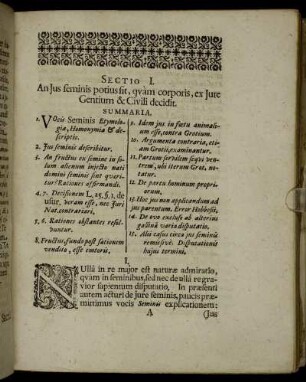 SECTIO I.
An Jus seminis potius sit, qvàm corporis, ex Jure
Gentium & Civili decidit.
SUMMARIA.
1. VOcis Seminis Etymologiæ, Homonymia & descriptio.
2. Jus seminis describitur.
3. An fructus eu semine in solum alienum injecto nati domini seminis sint quæritur? Rationes affirmandi.
4. 7. Decisionem L. 25. §. 1. de usur. veram esse, nec Juri Nat. contrariari.
5. 6. Rationes obstantes resolvuntur.
8. Fructus fundo post sationem vendito, esse emtoris.
9. Idem jus in fœtu animalium esse, contra Grotium.
10. Argumenta contraria, etiam Grotii, examinantur.
11. Partum servilem seqvi ventrem, ubi iterum Grot. notatur.
12. De partu hominum propriorum.
13. Hoc jus non applicandum ad jus parentum. Error Hobbesii.
14. De ovo excluso ab alterius gallina varia disputatio.
15. Alii casus circa jus seminis remissivè. Disputationis hujus termini.
I.
NUllâ in re major est naturæ admiratio,
qvàm in seminibus, sed nec de ullâ re gravior sapientum disputatio. In præsenti
autem acturi de jure seminis, paucis præmittimus vocis Seminis explicationem:
A (Jus